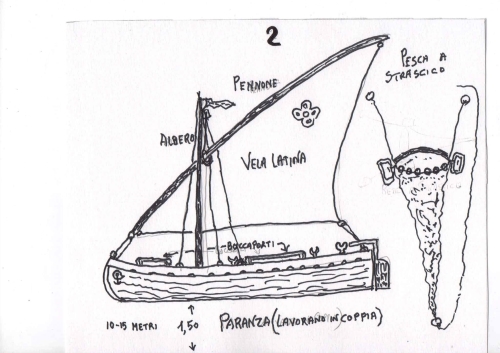 2
PESCA A
STRASCICO
PENNONE
ALBERO
VELA LATINA
BOCCAPORTI
10-15 METRI
1,50
PARANZA (LAVORANO IN COPPIA)